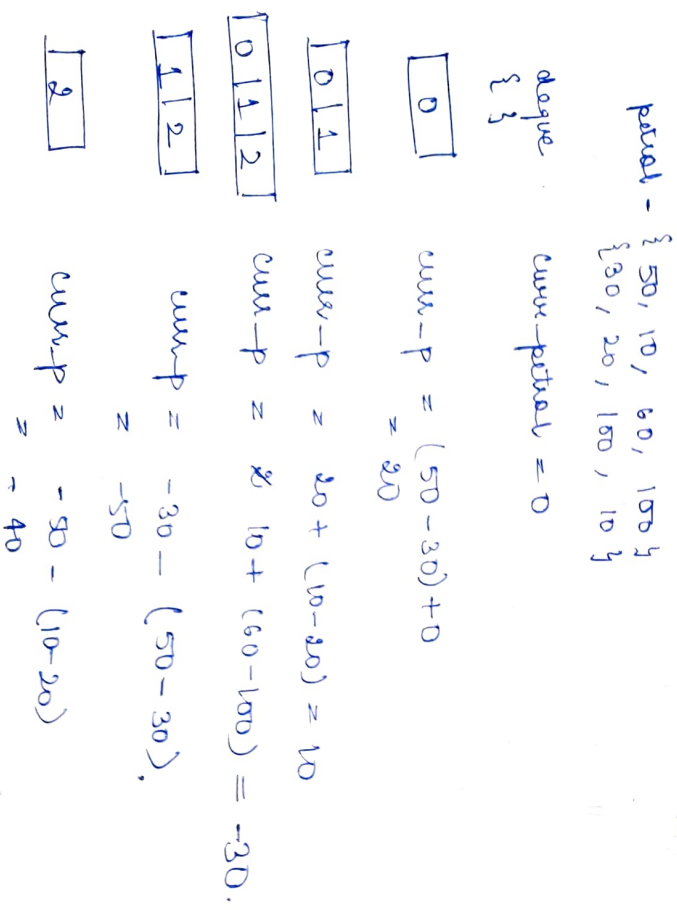 petrol - { 50, 10, 60, 100 }
{ 30, 20, 100, 10 }
deque curr-petrol = 0
{ }
0 curr-p = (50-30)+0
= 20
0 1 curr-p = 20 + (10-20) = 10
0 1 2 curr-p = 10 + (60-100) = -30.
1 2 curr-p = -30 - (50-30).
= -50
2 curr-p = -50 - (10-20)
= -40